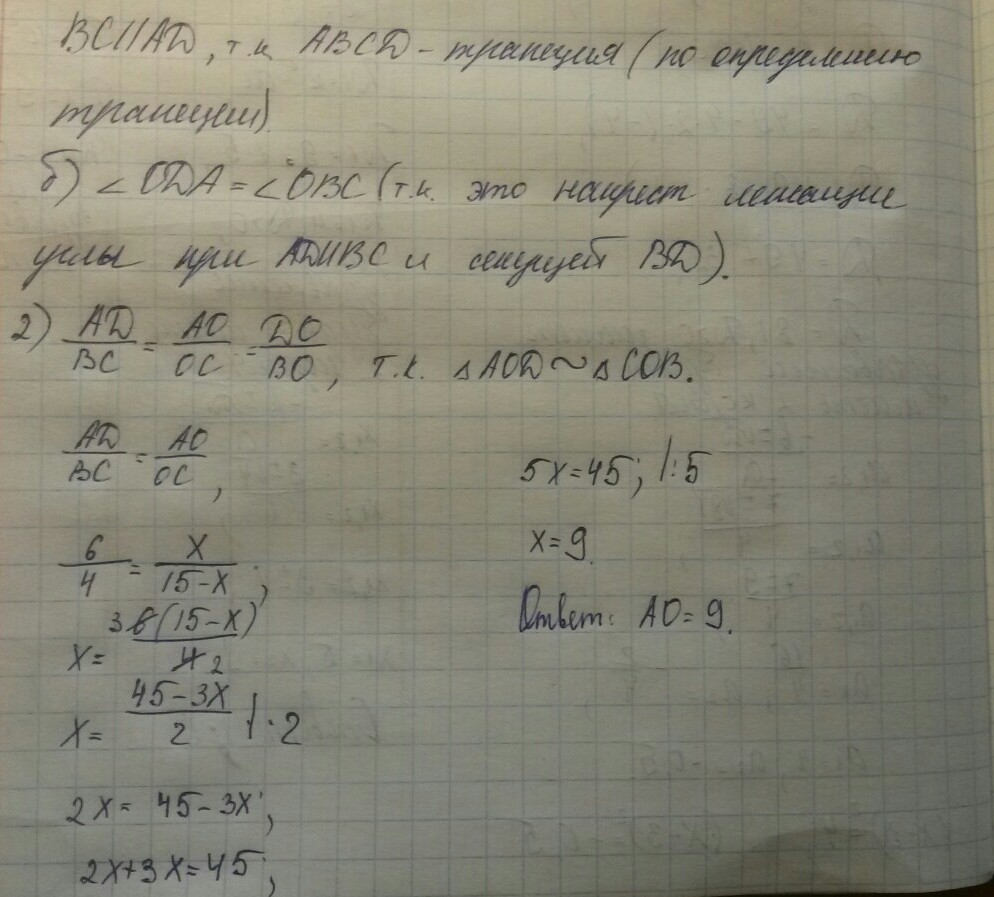 BC//AD, т.к ABCD - трапеция (по определению
трапеции).
б) ∠ODA = ∠OBC (т.к. это накрест лежащие
углы при AD||BC и секущей BD).
2) AD/BC = AO/OC = DO/BO, т.к. △AOD ~ △COB.
AD/BC = AO/OC,
6/4 = X/15-X;
X = 3 6(15-X)/4 2
X = 45-3X/2 |·2
2X = 45-3X;
2X+3X=45;
5X=45; |:5
X=9.
Ответ: AO=9.